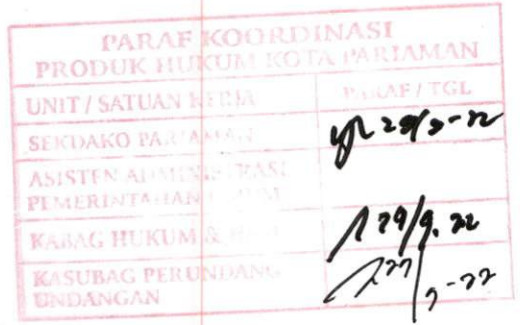 PARAF KOORDINASI
PRODUK HUKUM KOTA PARIAMAN
UNIT / SATUAN KERJA PARAF / TGL
SEKDAKO PARIAMAN
ASISTEN ADMINISTRASI
PEMERINTAHAN
KABAG HUKUM & 29/9. 22
KASUBAG PERUNDANG
UNDANGAN